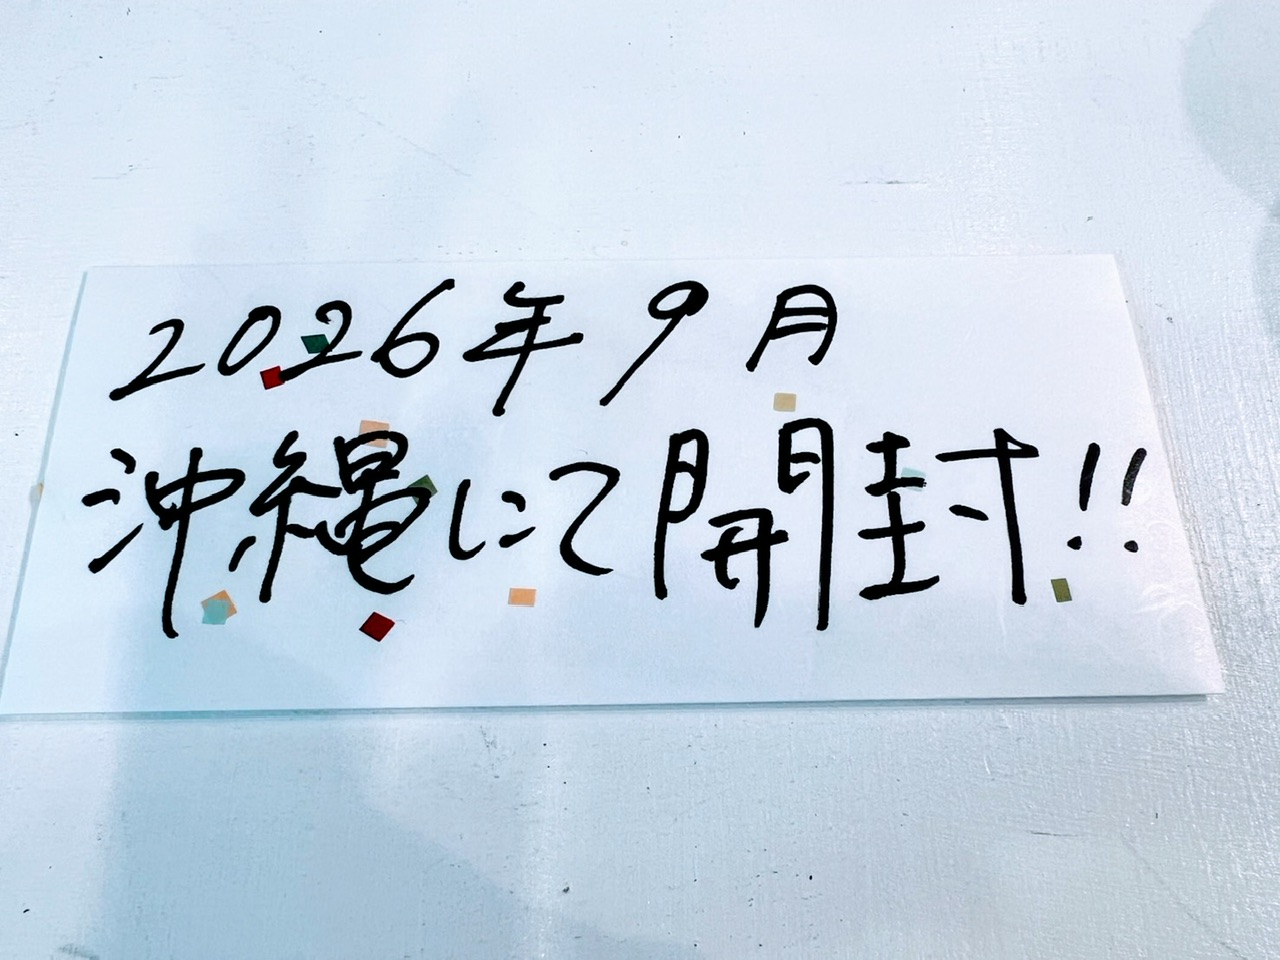 2026年9月
沖縄にて開封!!